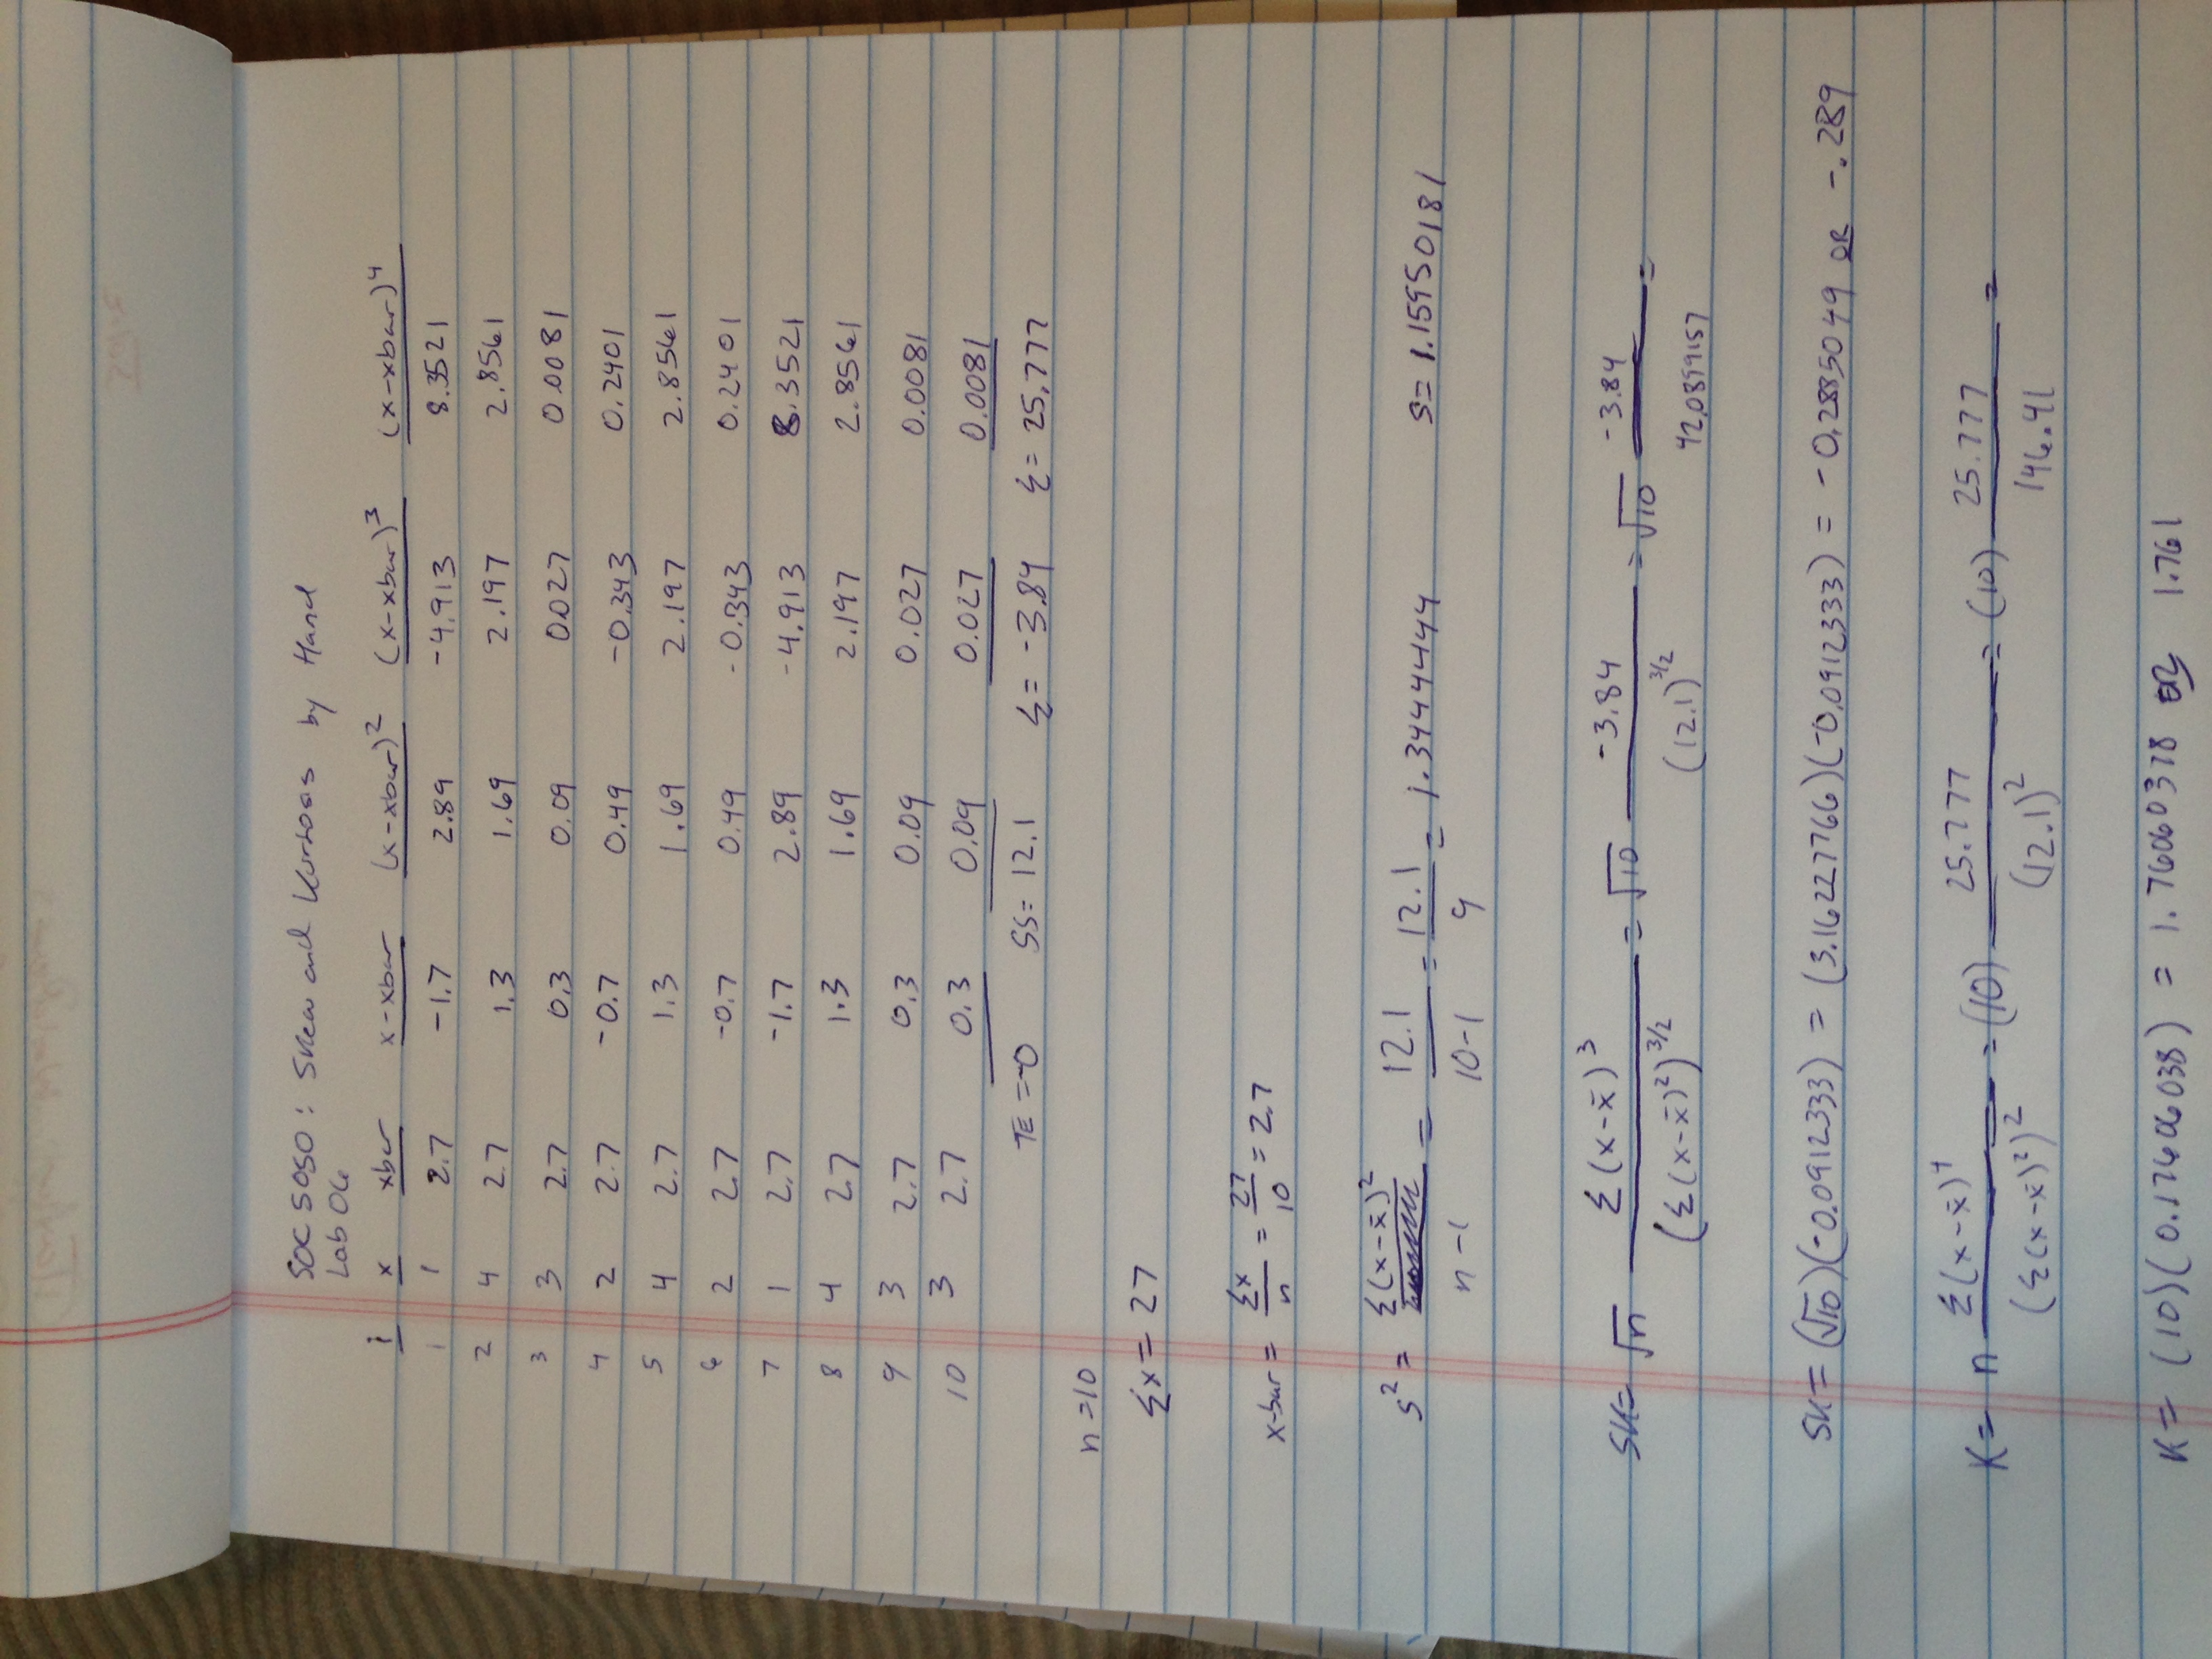 SOC 5050: Skew and Kurtosis by Hand
Lab 06
i x xbar x-xbar (x-xbar)² (x-xbar)³ (x-xbar)⁴
1 1 2.7 -1.7 2.89 -4.913 8.3521
2 4 2.7 1.3 1.69 2.197 2.8561
3 3 2.7 0.3 0.09 0.027 0.0081
4 2 2.7 -0.7 0.49 -0.343 0.2401
5 4 2.7 1.3 1.69 2.197 2.8561
6 2 2.7 -0.7 0.49 -0.343 0.2401
7 1 2.7 -1.7 2.89 -4.913 8.3521
8 4 2.7 1.3 1.69 2.197 2.8561
9 3 2.7 0.3 0.09 0.027 0.0081
10 3 2.7 0.3 0.09 0.027 0.0081
TE=0 SS=12.1 Σ=-3.84 Σ=25.777
n=10
Σx=27
x-bar = Σx/n = 27/10 = 2.7
s² = Σ(x-x̄)²/n-1 = 12.1/10-1 = 12.1/9 = 1.3444444 s=1.15950181
SK= √n Σ(x-x̄)³/(Σ(x-x̄)²)^3/2 = √10 -3.84/(12.1)^3/2 = √10 -3.84/42.0899157 =
SK= (√10)(-0.0912333) = (3.16227766)(-0.0912333) = -0.2885049 OR -.289
K= n Σ(x-x̄)⁴/(Σ(x-x̄)²)² = (10) 25.777/(12.1)² = (10) 25.777/146.41 =
K= (10)(0.17606038) = 1.76060378 OR 1.761